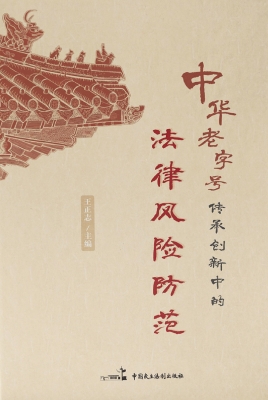 中华老字号
传承创新中的
法律风险防范
王正志/主编
中国民主法制出版社